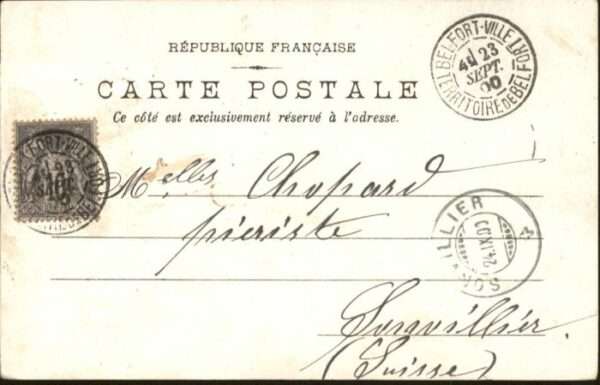 RÉPUBLIQUE FRANÇAISE
CARTE POSTALE
Ce côté est exclusivement réservé à l'adresse.
BELFORT-VILLE
23
SEPT.
00
TERRITOIRE DE BELFORT
Melles Chopard
pièriste
Sonvillier
(Suisse)
SONVILLIER